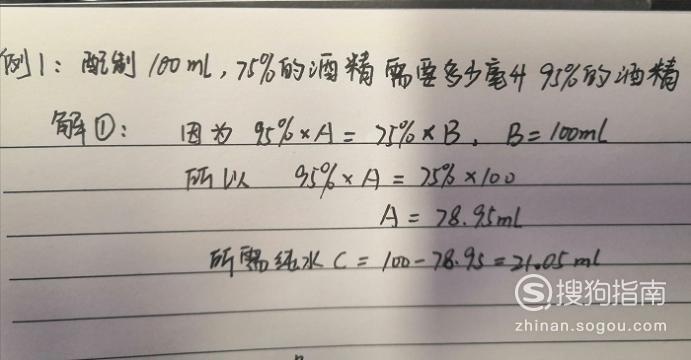 例1: 配制100ml,75%的酒精需要多少毫升95%的酒精
解①: 因为 95%×A=75%×B, B=100ml
所以 95%×A=75%×100
A=78.95ml
所需纯水C=100-78.95=21.05ml
搜狗指南
zhinan.sogou.com